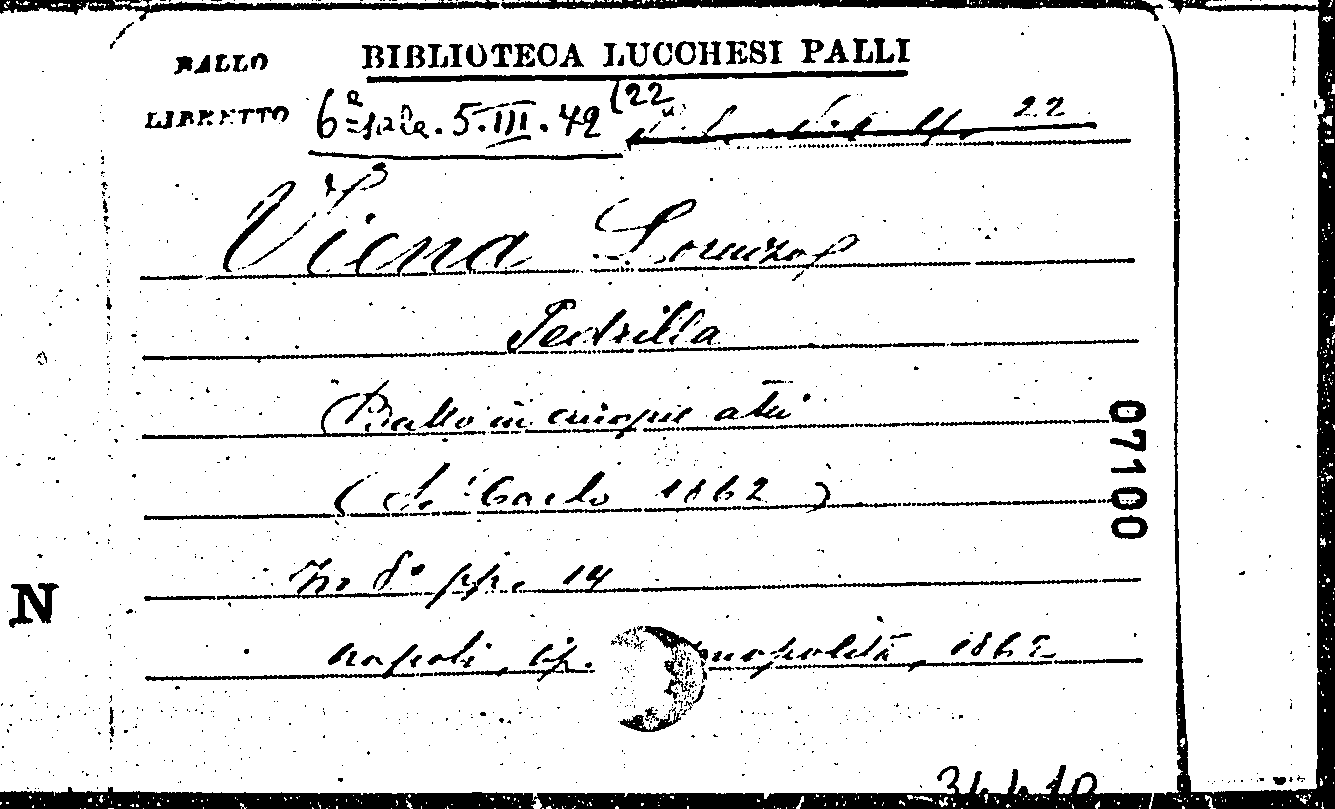 BALLO BIBLIOTECA LUCCHESI PALLI
LIBRETTO 6ª sala. 5. III. 42 (22
22
Viena Lorenzo
Pedrilla
Ballo in cinque atti
(S. Carlo 1862)
07100
In 8º pp. 14
N
Napoli, tip. mopolità, 1862